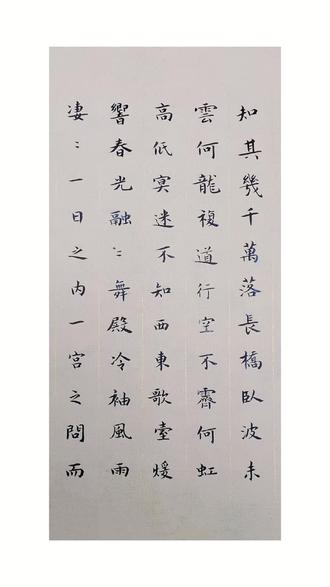 知其幾千萬落長橋臥波未
雲何龍複道行空不霽何虹
高低冥迷不知西東歌臺煖
響春光融〻舞殿冷袖風雨
凄〻一日之內一宮之間而